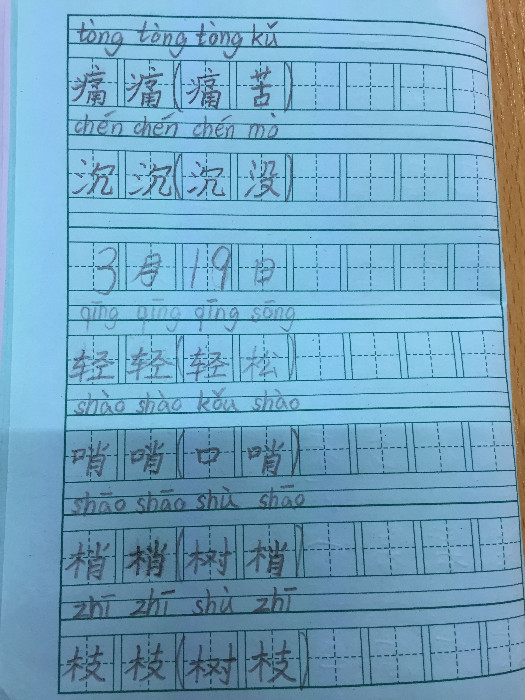 tòng tòng tòng kǔ
痛痛(痛苦)
chén chén chén mò
沉沉(沉没)
3月19日
qīng qīng qīng sōng
轻轻(轻松)
shào shào kǒu shào
哨哨(口哨)
shāo shāo shù shāo
梢梢(树梢)
zhī zhī shù zhī
枝枝(树枝)